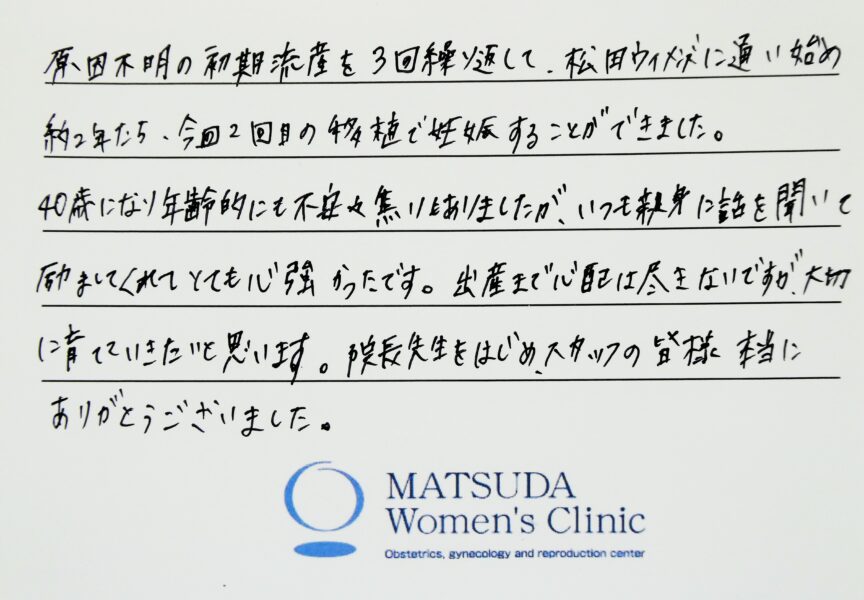 原因不明の初期流産を3回繰り返して、松田ウィメンズに通い始め
約2年たち、今回2回目の移植で妊娠することができました。
40歳になり年齢的にも不安や焦りもありましたが、いつも親身に話を聞いて
励ましてくれてとても心強かったです。出産まで心配は尽きないですが、大切
に育てていきたいと思います。院長先生をはじめ、スタッフの皆様本当に
ありがとうございました。
MATSUDA
Women's Clinic
Obstetrics, gynecology and reproduction center